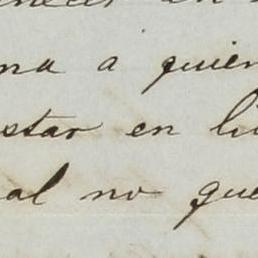 en
na a quien
star en
al no que